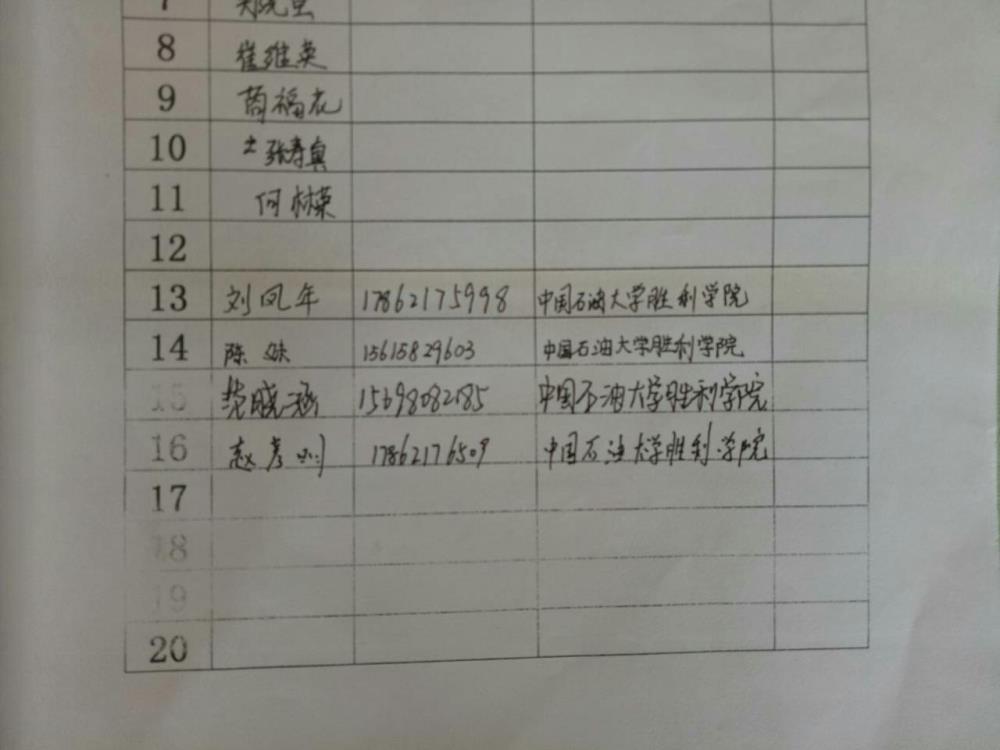 7
8 崔维英
9 茼福花
10 张寿真
11 何林荣
12
13 刘凤年 17862175998 中国石油大学胜利学院
14 陈妹 15615829603 中国石油大学胜利学院
15 晓涵 15698082185 中国石油大学胜利学院
16 赵彦 17862176509 中国石油大学胜利学院
17
18
19
20